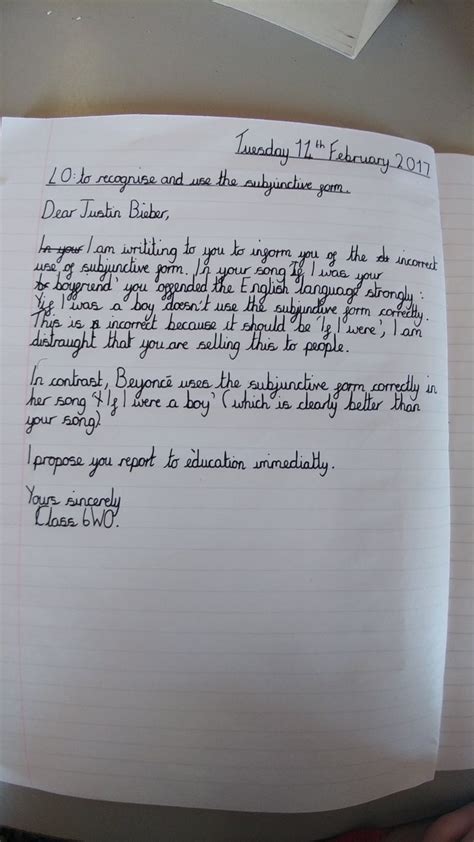 Tuesday 11th February 2017
LO: to recognise and use the subjunctive form.
Dear Justin Bieber,
In your I am writiting to you to inform you of the incorrect
use of subjunctive form. In your song 'If I was your
boyfriend' you offended the English language strongly:
'If I was a boy doesn't use the subjunctive form correctly.
This is incorrect because it should be 'if I were', I am
distraught that you are selling this to people.
In contrast, Beyoncé uses the subjunctive form correctly in
her song 'If I were a boy' (which is clearly better than
your song)
I propose you report to education immediatly.
Yours sincerely
Class 6WO.